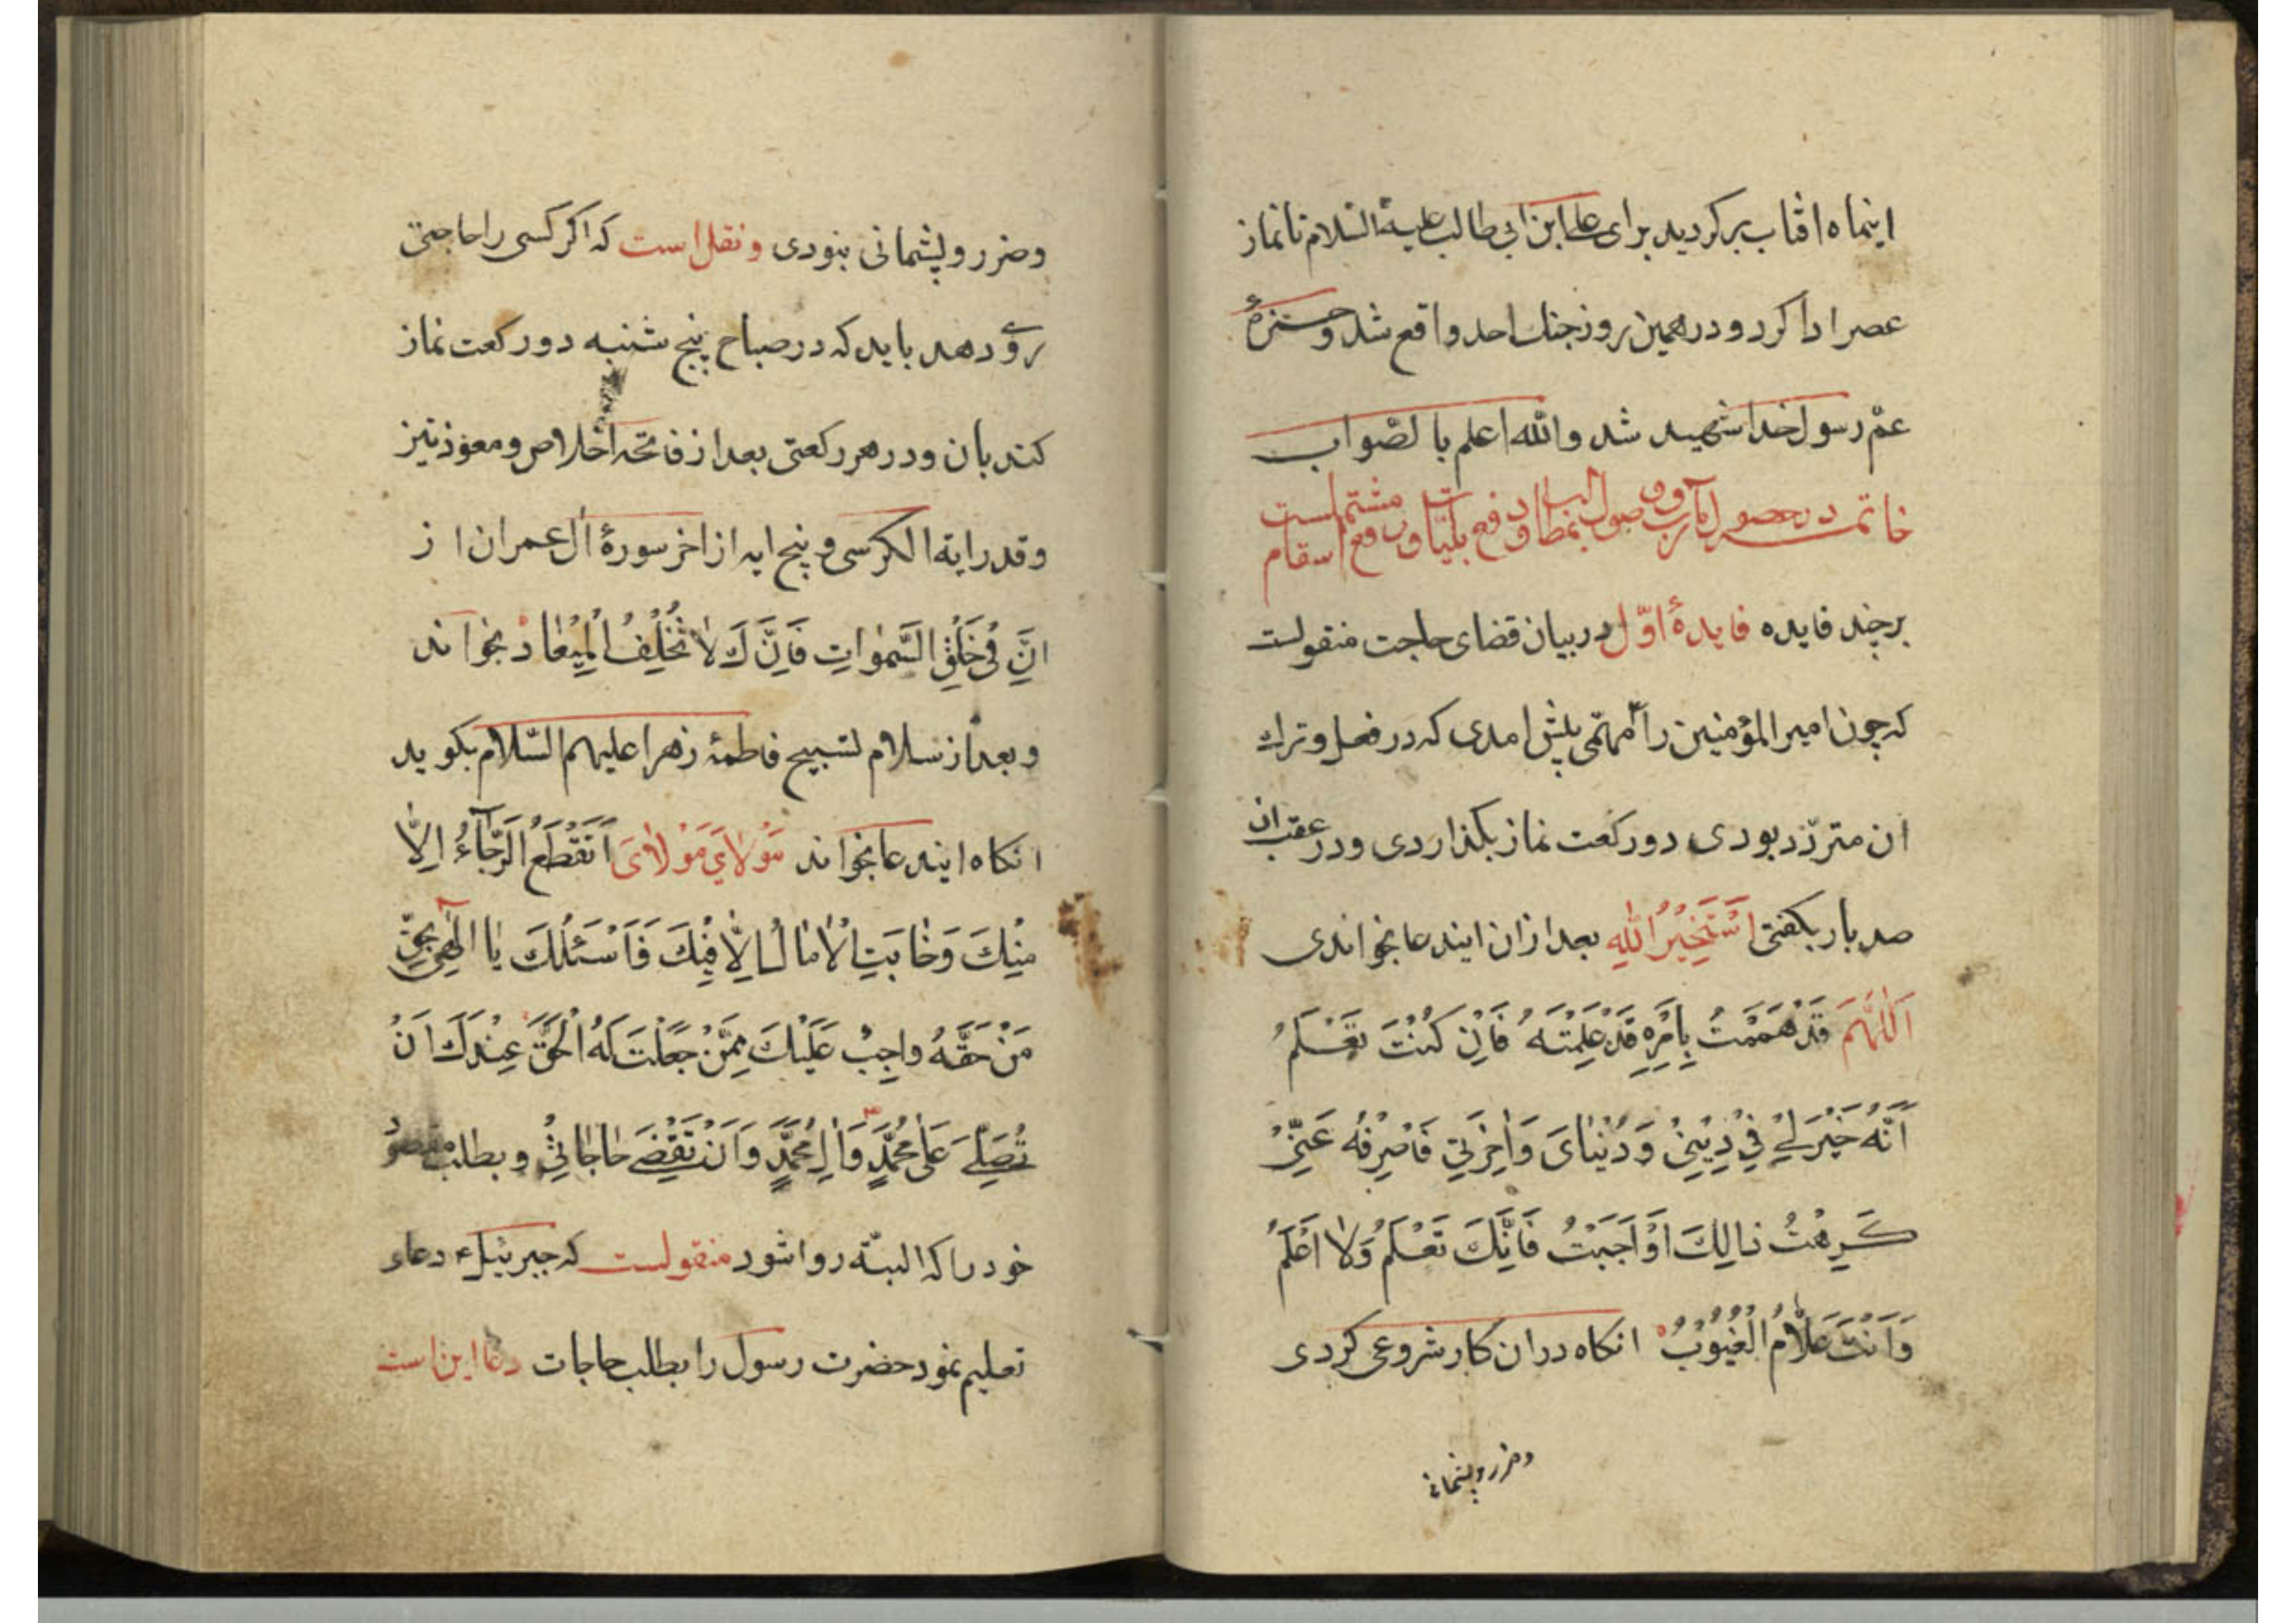 اینماه افتاب برکردید برای علی ابن ابی طالب علیه السلام تا نماز
عصر ادا کرد و در همین روز جنك احد واقع شد و حمزهٔ
عمّ رسول خدا شهید شد والله اعلم بالصّواب
خاتمه در حصول مآرب و وصول بمطالب و دفع بلیّات و رفع اسقام مشتملست
بر چند فایده فایدهٔ اوّل در بیان قضای حاجت منقولست
که چون امیر المؤمنین را مهمّی پیش امدی که در فعل و ترك
ان متردّد بودی دو رکعت نماز بکذاردی و در عقب ان
صد بار بکفتی اَسْتَخیرُ اللهَ بعد از ان ایندعا بخواندی
اَللّٰهُمَّ قَدْ هَمَمْتُ بِاَمْرٍ قَدْ عَلِمْتَهُ فَاِنْ كُنْتَ تَعْلَمُ
اَنَّهُ خَیْرٌ لی فی دینی وَ دُنْیٰایَ وَ اٰخِرَتی فَاصْرِفْهُ عَنّی
كَرِهْتُ ذالِكَ اَوْ اَحْبَبْتُ فَاِنَّكَ تَعْلَمُ وَلا اَعْلَمُ
وَاَنْتَ عَلّٰامُ الْغُیُوبُ انکاه در ان کار شروعی کردی
و ضرر و پشمانی
و ضرر و پشمانی نبودی و نقل است که اکر کسی را حاجتی
روی دهد باید که در صباح پنج شنبه دو رکعت نماز
کند بان و در هر رکعتی بعد از فاتحه اخلاص و معوذتیز
و قدر و ایة الکرسی و پنج ایه از اخر سورهٔ آل عمران از
اِنَّ فی خَلْقِ السَّمٰواتِ فَاِنَّكَ لا تُخْلِفُ الْمیعٰادْ بخواند
و بعد از سلام تسبیح فاطمهٔ زهرا علیهم السّلام بکوید
انکاه ایندعا بخواند مَوْلایَ مَوْلایَ اَنْقَطَعَ الرَّجآءُ اِلّا
مِنْكَ وَ خٰابَتِ الْاٰمٰالُ اِلّٰا فیكَ فَاَسْئَلُكَ یٰا اِلٰهی بِحَقِّ
مَنْ حَقُّهُ واجِبٌ عَلَیْكَ مِمَّنْ جَعَلْتَ لَهُ الْحَقَّ عِنْدَكَ اَنْ
تُصَلِّیَ عَلٰی مُحَمَّدٍ وَ اٰلِ مُحَمَّدٍ وَ اَنْ تَقْضِیَ حٰاجٰاتی و بطلب مقصود
خود را که البتّه روا شود منقولست که جبرئیل ع دعاء
تعلیم نمود حضرت رسول را بطلب حاجات دعا این است